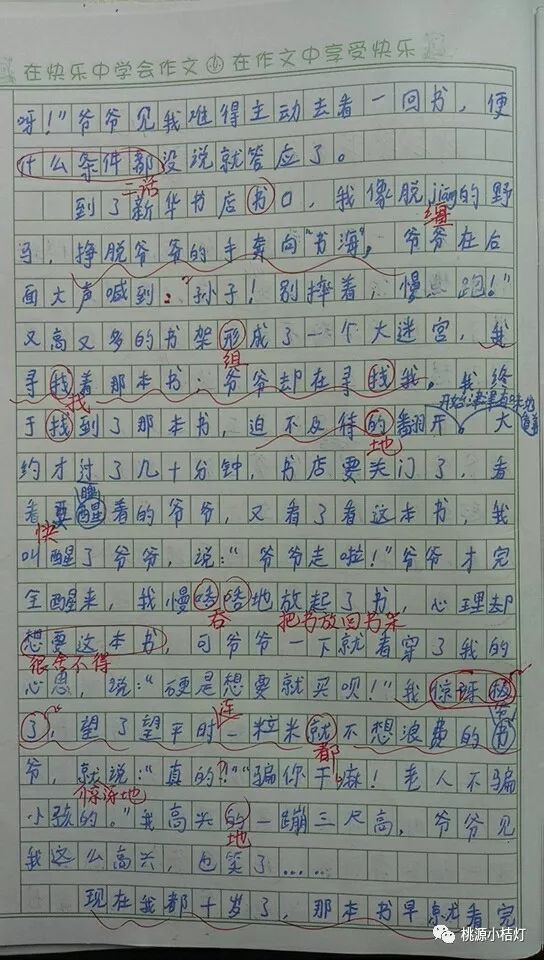 在快乐中学会作文 在作文中享受快乐
呀!"爷爷见我难得主动去看一回书,便
什么条件都没说就答应了。
二话
到了新华书店书口,我像脱jiāng的野
缰
马,挣脱爷爷的手奔向"书海",爷爷在后
面大声喊到:"孙子!别摔着,慢点跑!"
又高又多的书架形成了一个大迷宫,我
组
寻找着那本书,爷爷却在寻找我。我终
找
于找到了那本书,迫不及待的翻开。大
地
约才过了几十分钟,书店要关门了,看
睡
看要醒着的爷爷,又看了看这本书,我
快
叫醒了爷爷,说:"爷爷走啦!"爷爷才完
全醒来,我慢吞吞地放起了书,心理却
吞 把书放回书架
想要这本书,可爷爷一下就看穿了我的
很舍不得
心思,说:"硬是想要就买呗!"我惊讶极
连
了,望了望平时一粒米就不想浪费的爷
都
爷,就说:"真的?!""骗你干嘛!老人不骗
惊讶地
小孩的。"我高兴的一蹦三尺高,爷爷见
地
我这么高兴,也笑了……
现在我都十岁了,那本书早就看完
桃源小桔灯